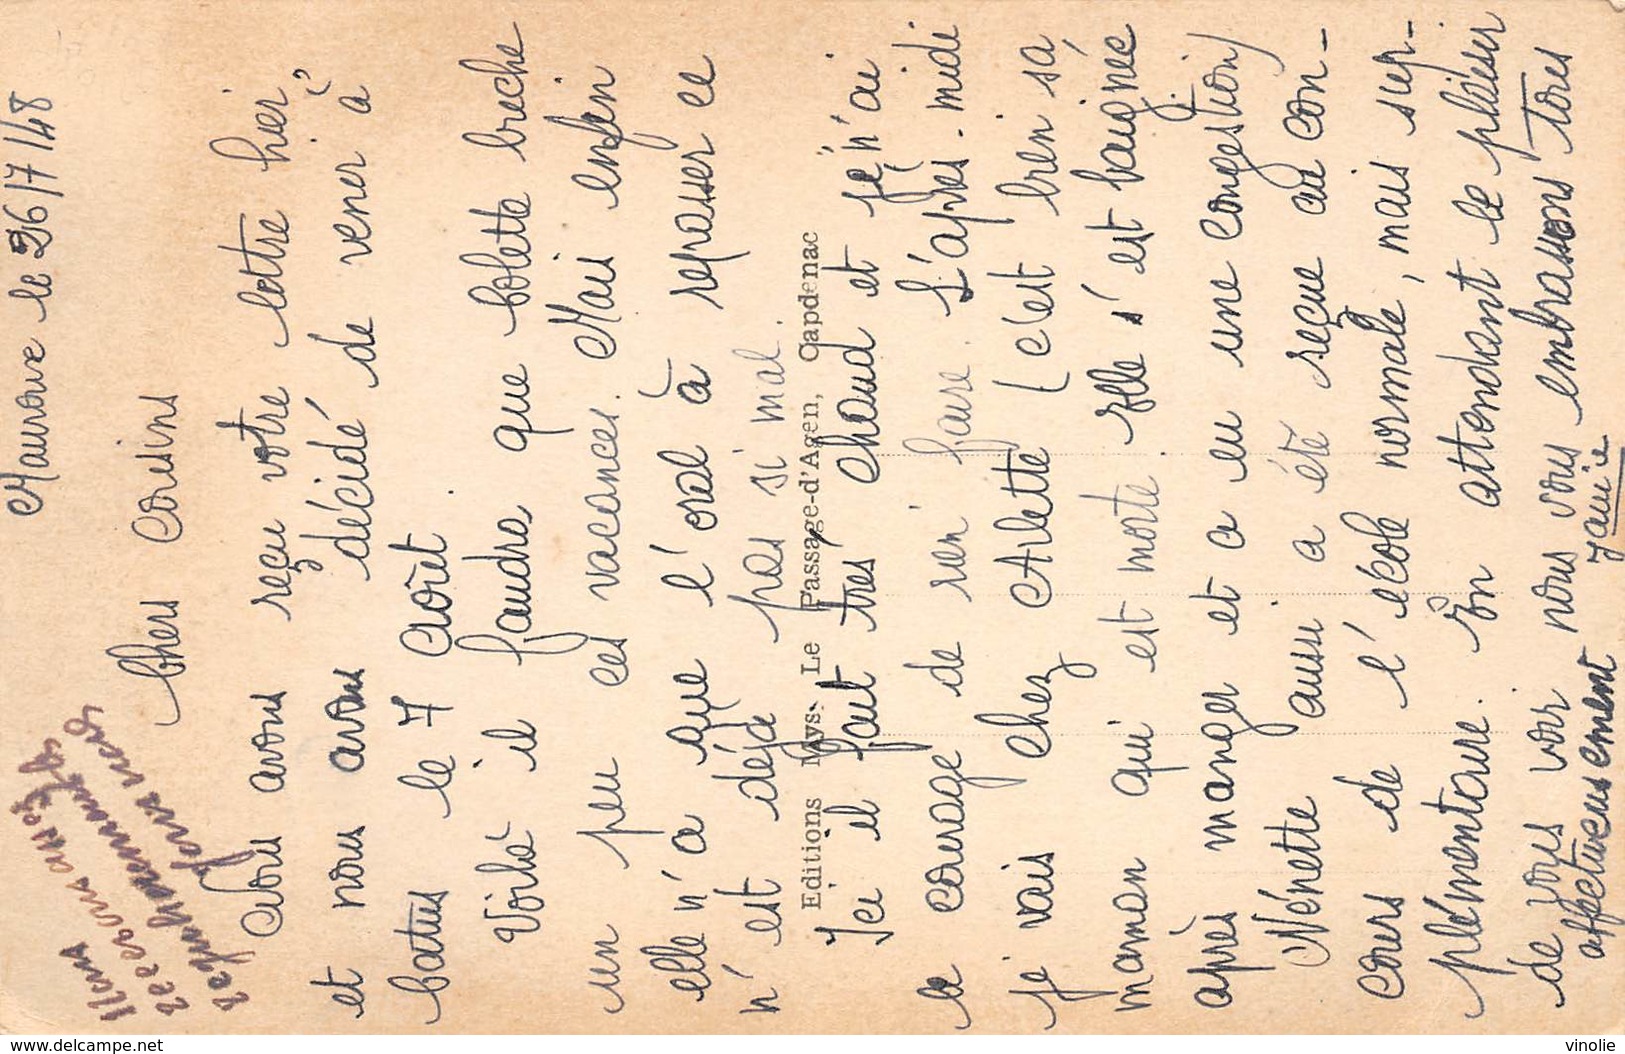 Mauroux le 26/7/48
Chers cousins
Nous avons reçu votre lettre hier
et nous avons décidé de venir à
batus le 7 août.
Voilà il faudra que Colette breche
un peu ces vacances. Mais enfin
elle n'a que l'oral à repasser ce
n'est déjà pas si mal.
Editions Mys. Le Passage-d'Agen, Capdenac
Ici il fait très chaud et je n'ai
le courage de rien faire. L'après-midi
je vais chez Arlette (c'est bien sa
maman qui est morte elle s'est baignée
après manger et a eu une congestion)
Nénette aussi a été reçue au con-
cours de l'école normale, mais sup-
plémentaire. En attendant le plaisir
de vous voir nous vous embrassons tous
affectueusement
Janie
Nous
recevons
delcampe.net
vinolie